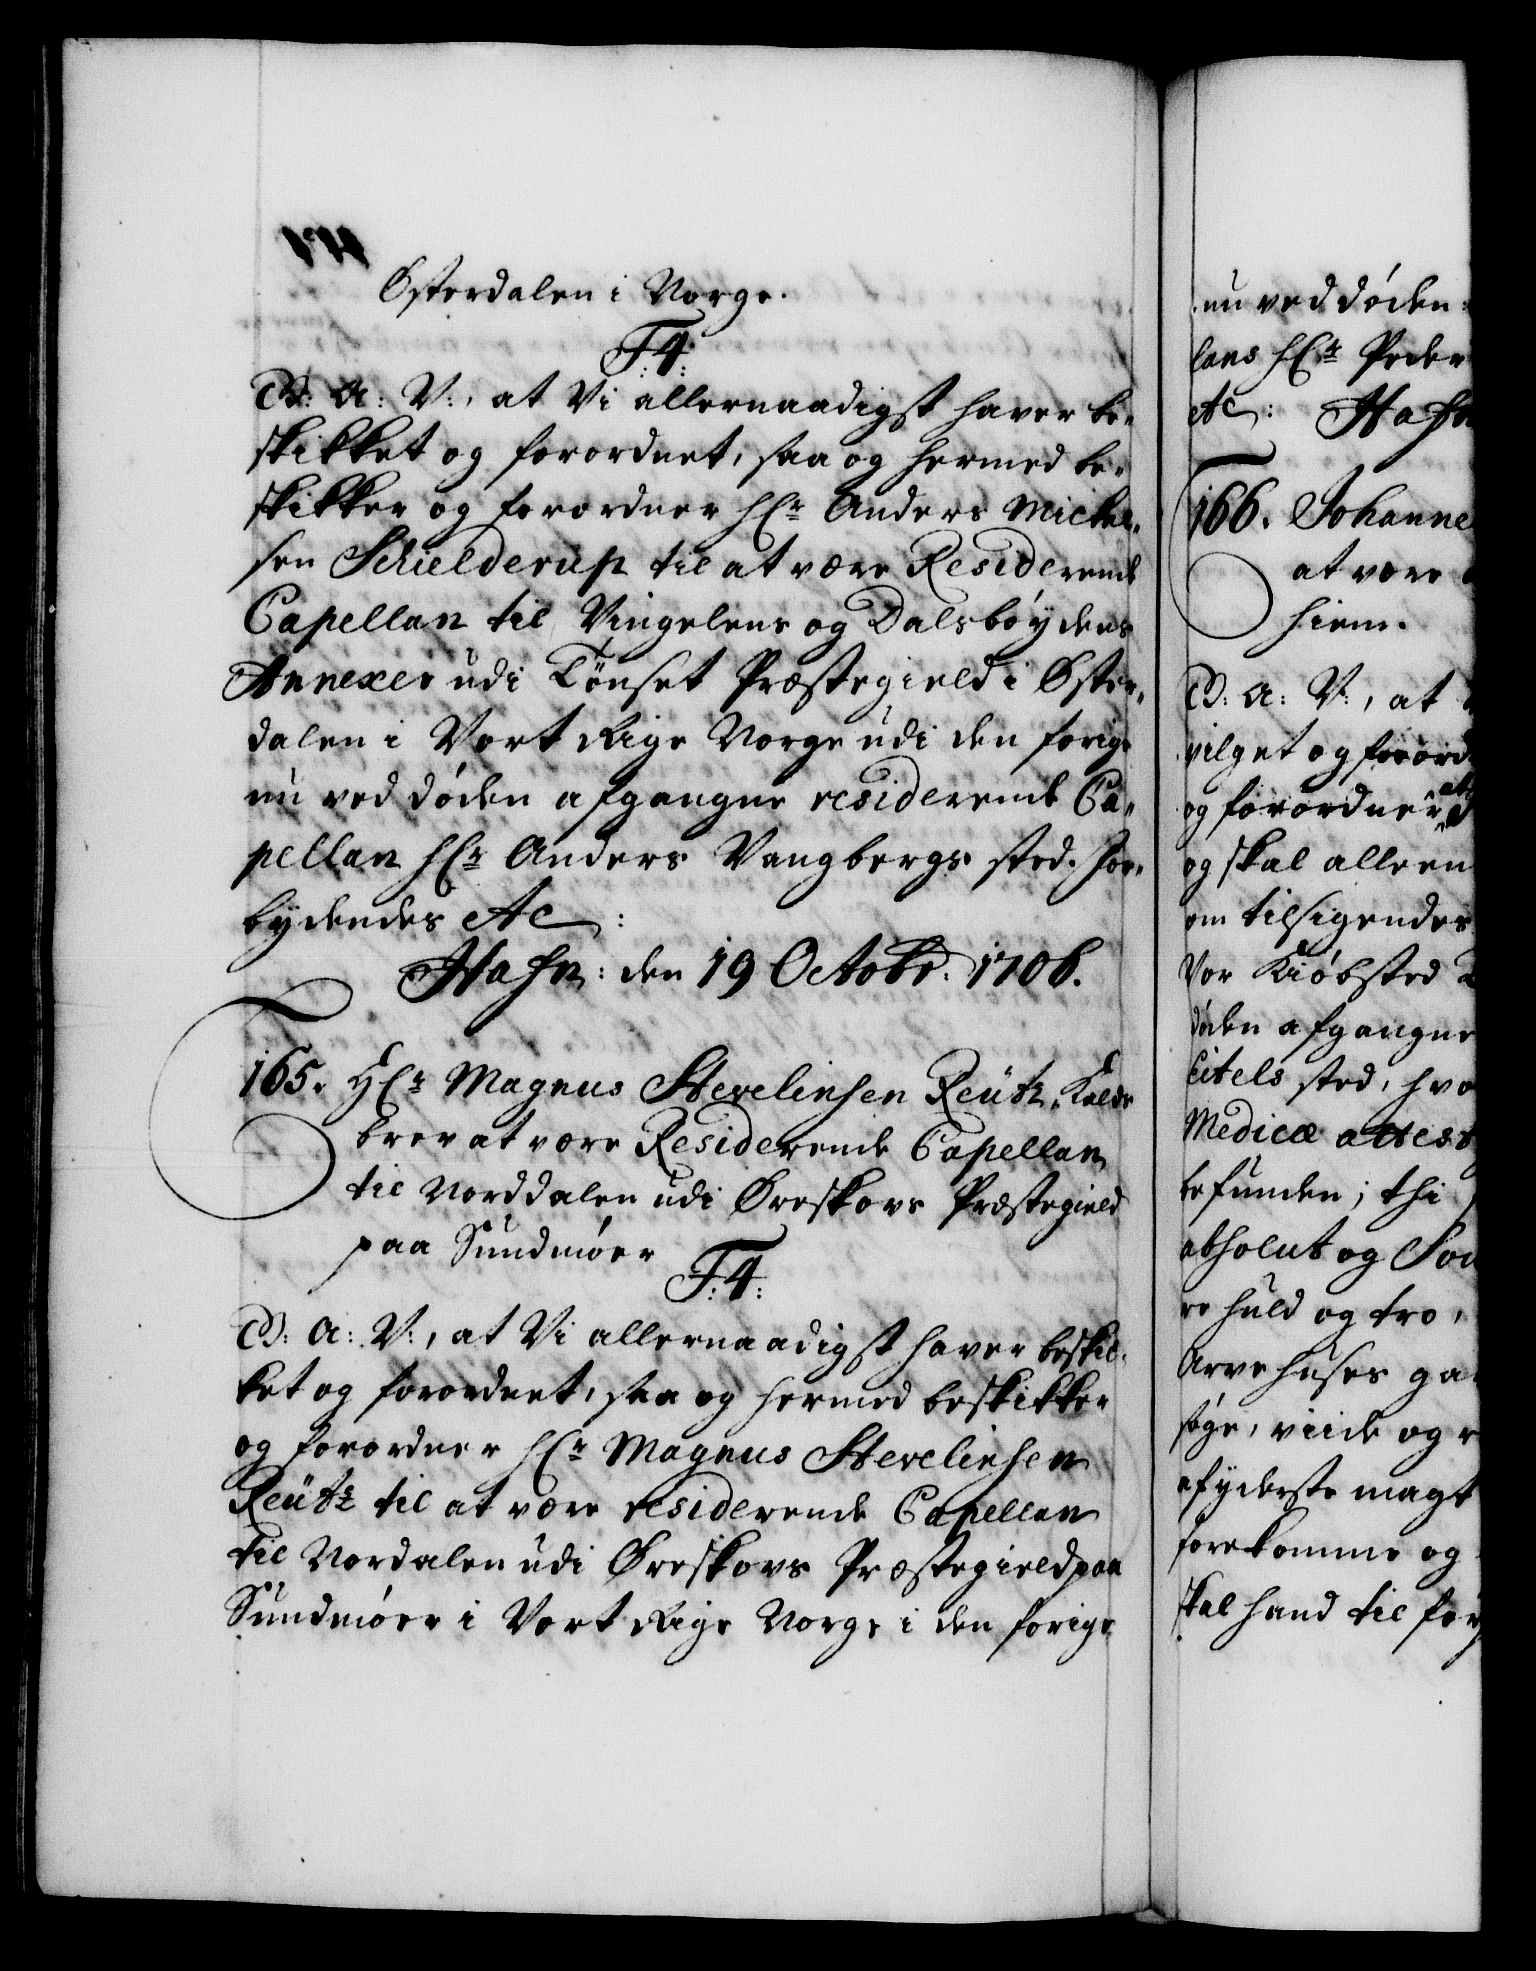 Østerdalen i Norge.
F:4:
G: A: V:, at Vi allernaadigst haver be-
skikket og forordnet, saa og hermed be-
skikker og forordner Hr. Anders Michel-
sen Schielderup til at være Residerende
Capellan til Vingelens og Dalsbøydens
Annexer udi Tønset Præstegield i Øster-
dalen i Vort Rige Norge udi den forige
nu ved døden afgangne residerende Ca-
pellan Hr. Anders Vangbergs sted. For-
bydendes Etc:
Hafn: den 19 Octobr: 1706.
165. Hr. Magnus Stevelinsen Reutz, Kalds
brev at være Residerende Capellan
til Norddalen udi Øreskovs Præstegield
paa Sundmøer
F:4:
G: A: V:, at Vi allernaadigst haver beskic-
ket og forordnet, saa og hermed beskikker
og forordner Hr. Magnus Stevelinsen
Reutz til at være residerende Capellan
til Nordalen udi Øreskovs Præstegield paa
Sundmøer i Vort Rige Norge i den forige
nu ved døden
lans Hr. Peder
Etc: Hafn
166. Johanne
at være
hiem.
G: A: V:, at
vilget og forord
og forordner, at
og skal alleen
om tilsigendes
Vor Kiøbsted
døden afgangne
Citels sted, hvo
Medicæ attest
befunden; thi
absolut og Sou
re huld og tro,
Arvehuses ga
søge, viide og r
afyderste magt
forekomme og
skal hand til for